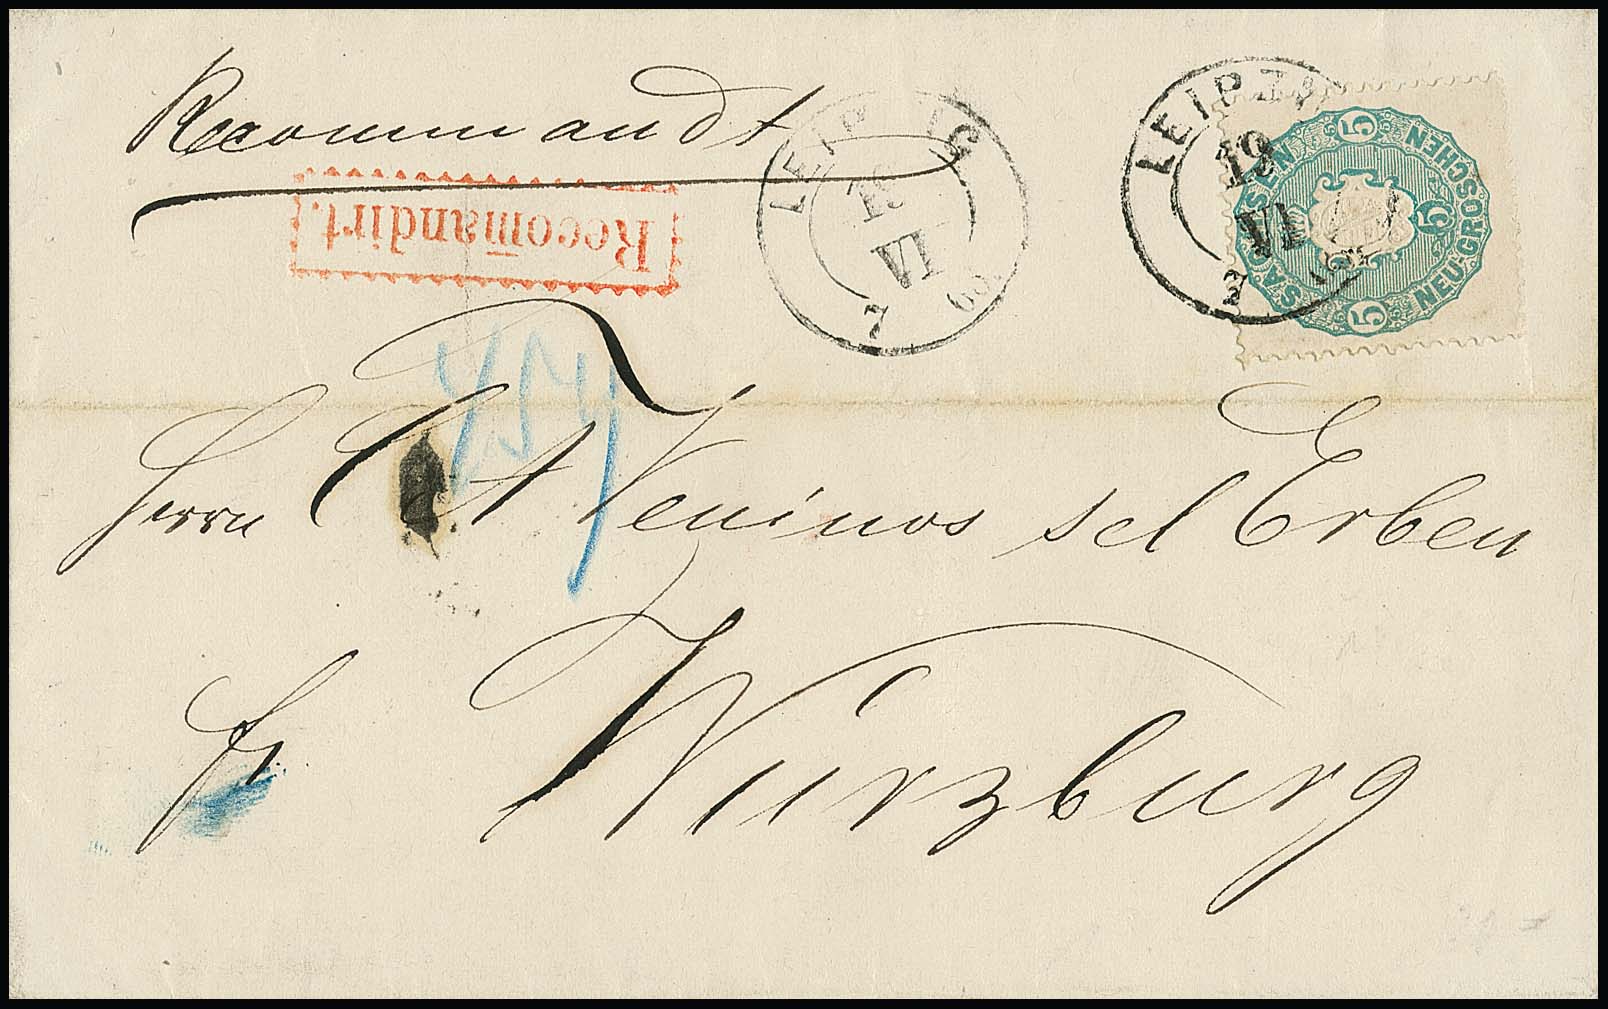 Recommandt
Recom̄andirt.
LEIPZIG
19
VI
7 63
LEIPZIG
19
VI
7
SACHSEN
NEU-GROSCHEN
5 5 5
Herrn Veninos sel Erben
fr Würzburg